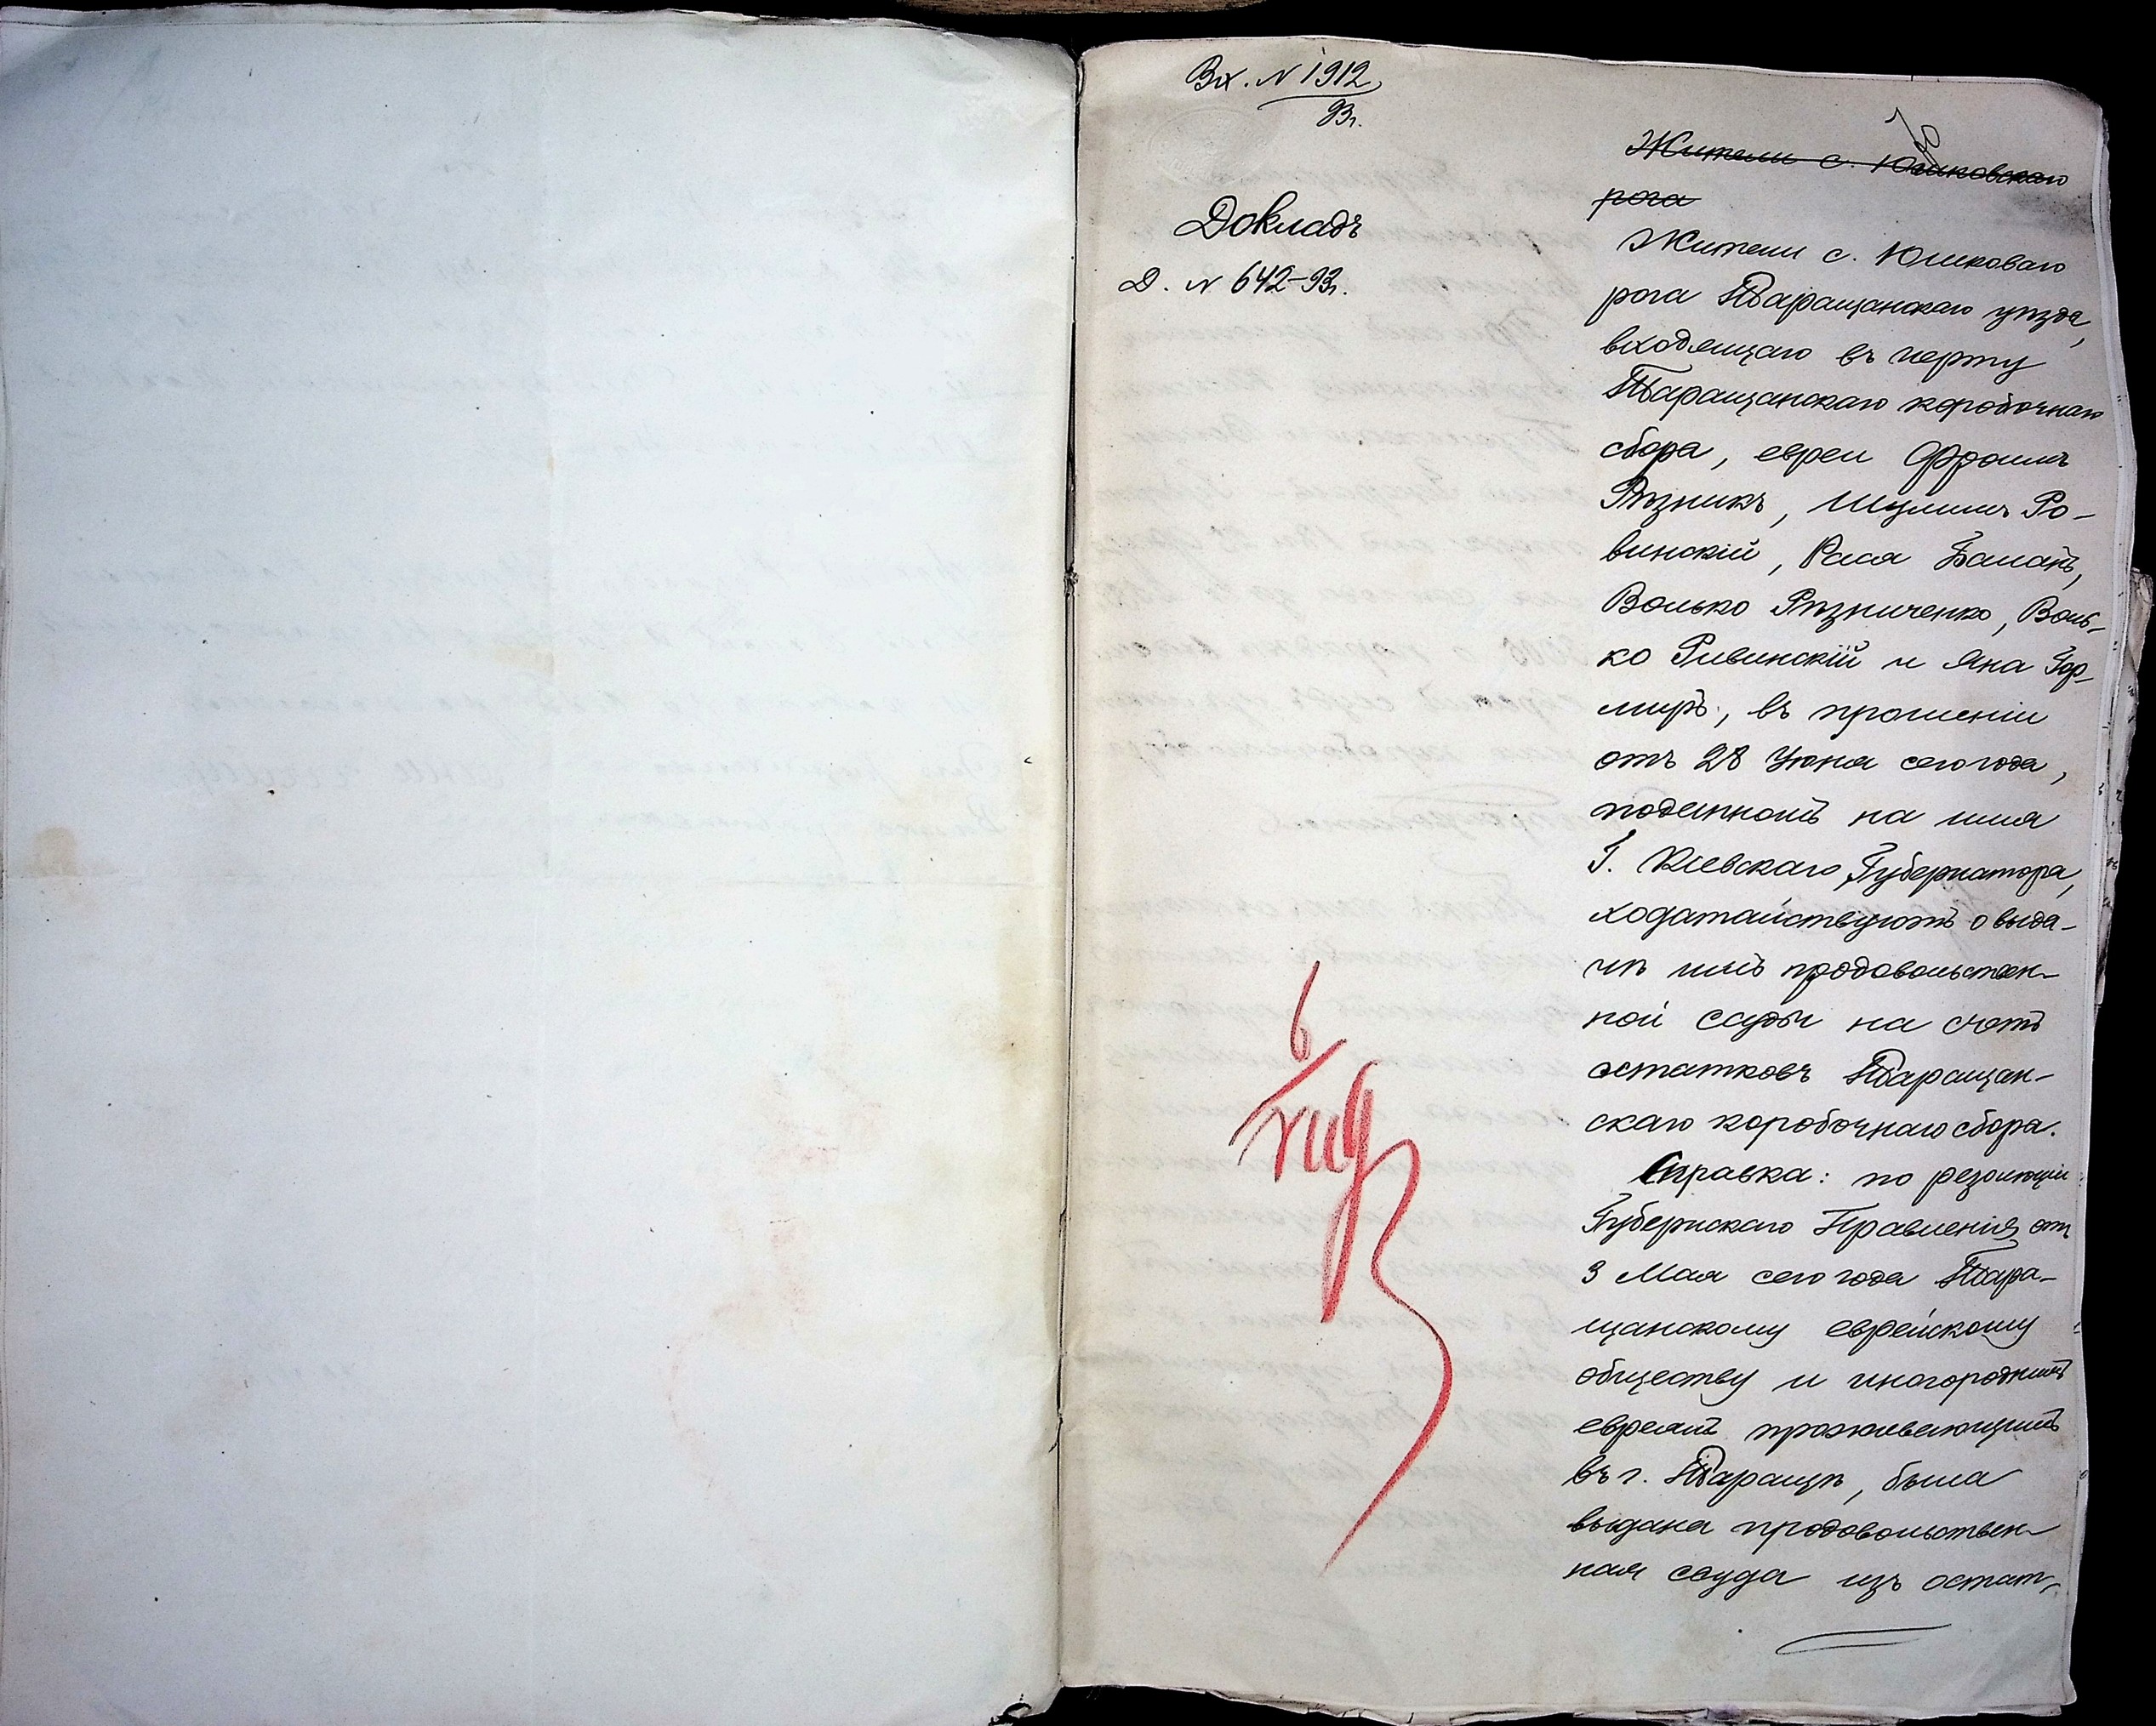 Вх. N 1912
93г.
Докладъ
Д. N 642-93г.
Жители с. Юшковскаго
рога
Жители с. Юшковаго
рога Таращанскаго уѣзда,
входящаго въ черту
Таращанскаго коробочнаго
сбора, евреи Фроимъ
Рѣзникъ, Шулимъ Ро-
винскій, Рася
Волько Рѣзниченко, Воль-
ко Ривинскій и Яна Гор-
миръ, въ прошеніи
отъ 28 Іюня сего года,
поданномъ на имя
Г. Кіевскаго Губернатора,
ходатайствуютъ о выда-
чѣ имъ продовольствен-
ной ссуды на счетъ
остатковъ Таращан-
скаго коробочнаго сбора.
Справка: по резолюціи
Губернскаго Правленія отъ
3 Мая сего года Тара-
щанскому еврейскому
обществу и иногороднимъ
евреямъ проживающимъ
въ г. Таращѣ, была
выдана продовольствен-
ная ссуда изъ остат-